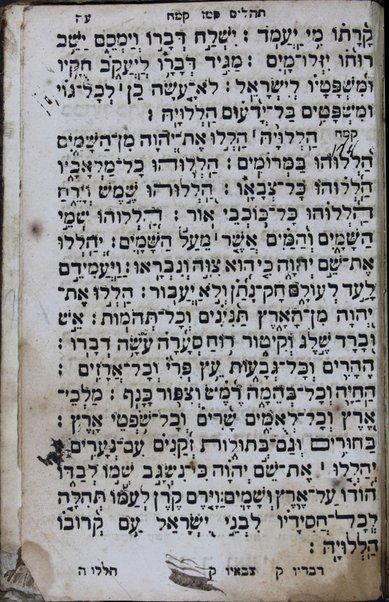 תהלים קמז קמח
ע״ה
קָרָתוֹ מִי יַעֲמֹד ׃ יִשְׁלַח דְּבָרוֹ וְיַמְסֵם יַשֵּׁב
רוּחוֹ יִזְּלוּ־מָיִם ׃ מַגִּיד דְּבָרָו לְיַעֲקֹב חֻקָּיו
וּמִשְׁפָּטָיו לְיִשְׂרָאֵל ׃ לֹא־עָשָׂה כֵן ׀ לְכָל־גּוֹי
וּמִשְׁפָּטִים בַּל־יְדָעוּם הַלְלוּיָהּ ׃
קמח
הַלְלוּיָהּ ׀ הַלְלוּ אֶת־יְהוָה מִן־הַשָּׁמַיִם
הַלְלוּהוּ בַּמְּרוֹמִים ׃ הַלְלוּהוּ כָל־מַלְאָכָיו
הַלְלוּהוּ כָּל־צְבָאָו ׃ הַלְלוּהוּ שֶׁמֶשׁ וְיָרֵחַ
הַלְלוּהוּ כָּל־כּוֹכְבֵי אוֹר ׃ הַלְלוּהוּ שְׁמֵי
הַשָּׁמָיִם וְהַמַּיִם אֲשֶׁר ׀ מֵעַל הַשָּׁמָיִם ׃ יְהַלְלוּ
אֶת־שֵׁם יְהוָה כִּי הוּא צִוָּה וְנִבְרָאוּ ׃ וַיַּעֲמִידֵם
לָעַד לְעוֹלָם חָק־נָתַן וְלֹא יַעֲבוֹר ׃ הַלְלוּ אֶת־
יְהוָה מִן־הָאָרֶץ תַּנִּינִים וְכָל־תְּהֹמוֹת ׃ אֵשׁ
וּבָרָד שֶׁלֶג וְקִיטוֹר רוּחַ סְעָרָה עֹשָׂה דְבָרוֹ ׃
הֶהָרִים וְכָל־גְּבָעוֹת עֵץ פְּרִי וְכָל־אֲרָזִים ׃
הַחַיָּה וְכָל־בְּהֵמָה רֶמֶשׂ וְצִפּוֹר כָּנָף ׃ מַלְכֵי־
אֶרֶץ וְכָל־לְאֻמִּים שָׂרִים וְכָל־שֹׁפְטֵי אָרֶץ ׃
בַּחוּרִים וְגַם־בְּתוּלוֹת זְקֵנִים עִם־נְעָרִים ׃
יְהַלְלוּ ׀ אֶת־שֵׁם יְהוָה כִּי־נִשְׂגָּב שְׁמוֹ לְבַדּוֹ
הוֹדוֹ עַל־אֶרֶץ וְשָׁמָיִם ׃ וַיָּרֶם קֶרֶן לְעַמּוֹ תְּהִלָּה
לְכָל־חֲסִידָיו לִבְנֵי יִשְׂרָאֵל עַם קְרֹבוֹ
הַלְלוּיָהּ ׃
דבריו ק צבאיו ק
הללו ה